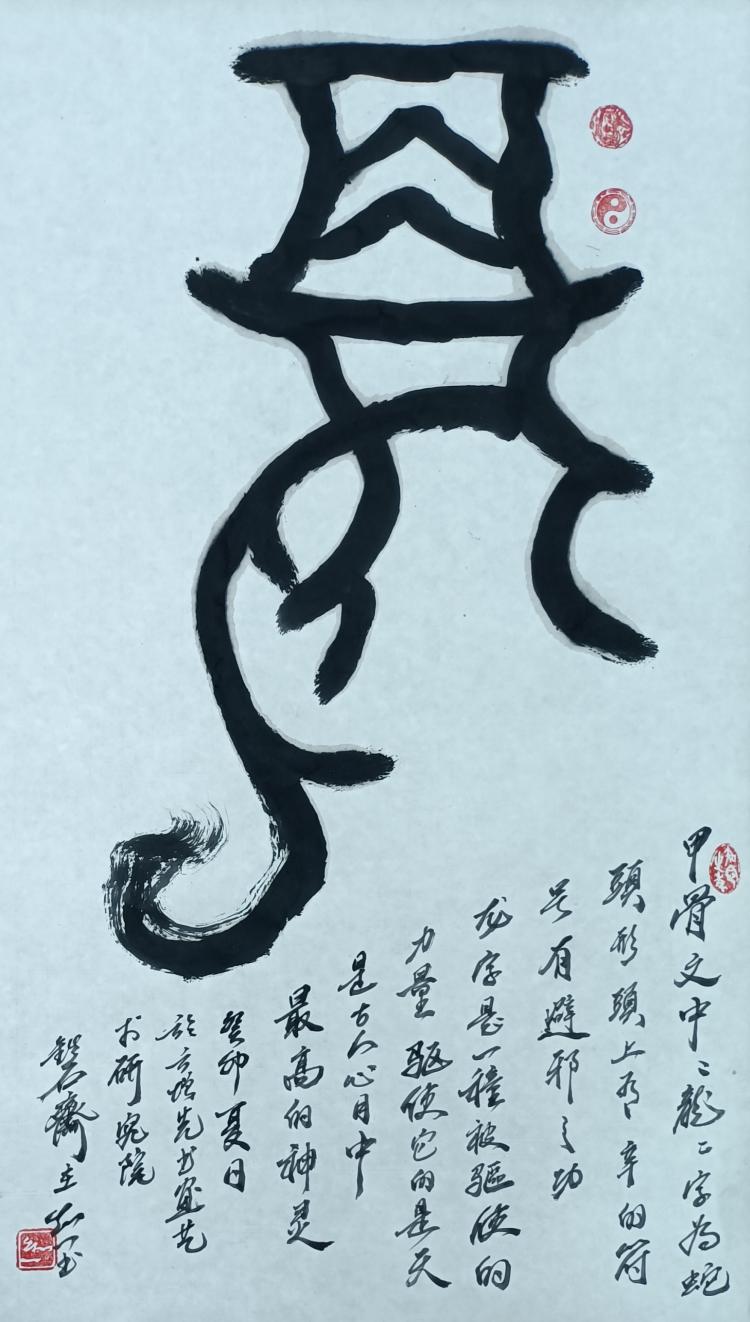 龍
甲骨文中"龍"字为蛇
頭形頭上有辛的符
号有避邪之功
龙字是一種被驅使的
力量驱使它的是天
是古人心目中
最高的神灵
癸卯夏日
於云增先书画艺
术研究院
磐石齋主